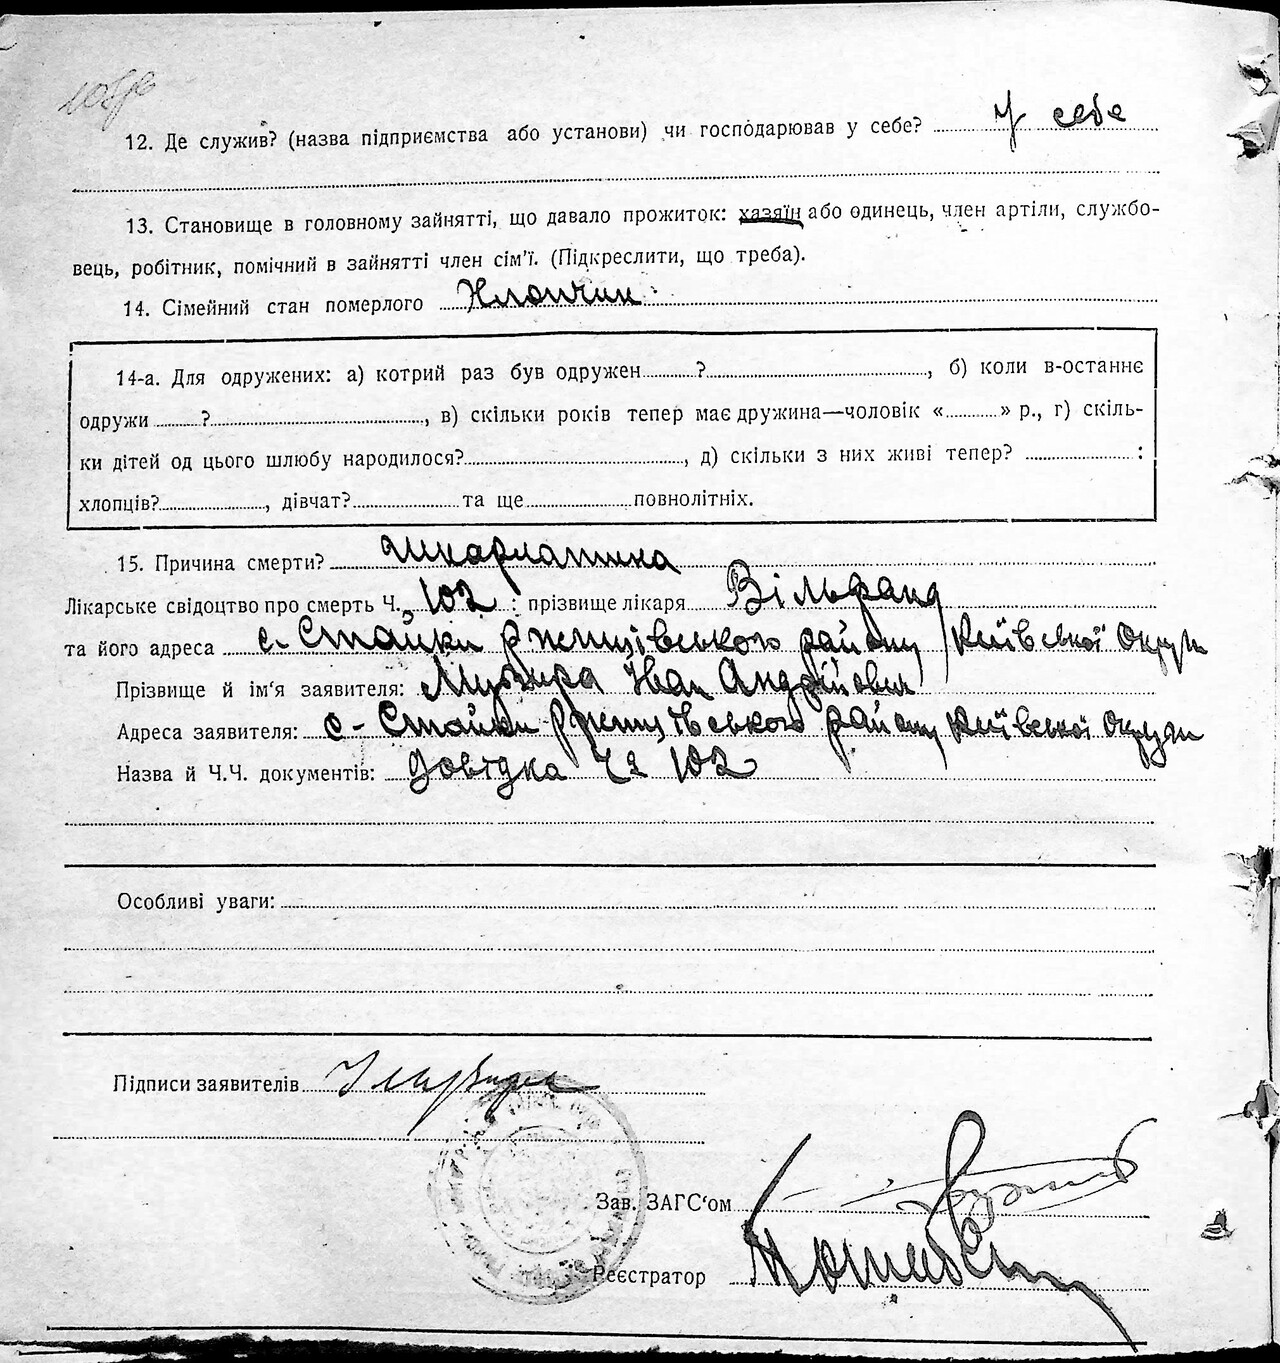 12. Де служив? (назва підприємства або установи) чи господарював у себе? У себе
13. Становище в головному зайнятті, що давало прожиток: хазяїн або одинець, член артіли, службо-
вець, робітник, помічний в зайнятті член сім'ї. (Підкреслити, що треба).
14. Сімейний стан померлого Хлопчик
14-а. Для одружених: а) котрий раз був одружен ? , б) коли в-останнє
одружи ? , в) скільки років тепер має дружина—чоловік « » р., г) скіль-
ки дітей од цього шлюбу народилося? , д) скільки з них живі тепер? :
хлопців? , дівчат? та ще повнолітніх.
15. Причина смерти? Шкарлатина
Лікарське свідоцтво про смерть Ч. 102 : прізвище лікаря Вільфанд
та його адреса с. Стайки Ржищівського району Київської Округи
Прізвище й ім'я заявителя: Іван Андрійович
Адреса заявителя: с- Стайки Ржищівського району Київської Округи
Назва й Ч.Ч. документів: Довідка Ч 102
Особливі уваги:
Підписи заявителів
Зав. ЗАГС'ом
Реєстратор